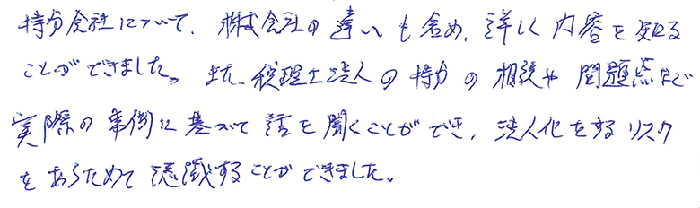 持分会社について、株式会社の違いも含め、詳しく内容を知る
ことができました。また、税理士法人の持分の相続や問題点など
実際の事例に基づいて話を聞くことができ、法人化をするリスク
をあらためて認識することができました。